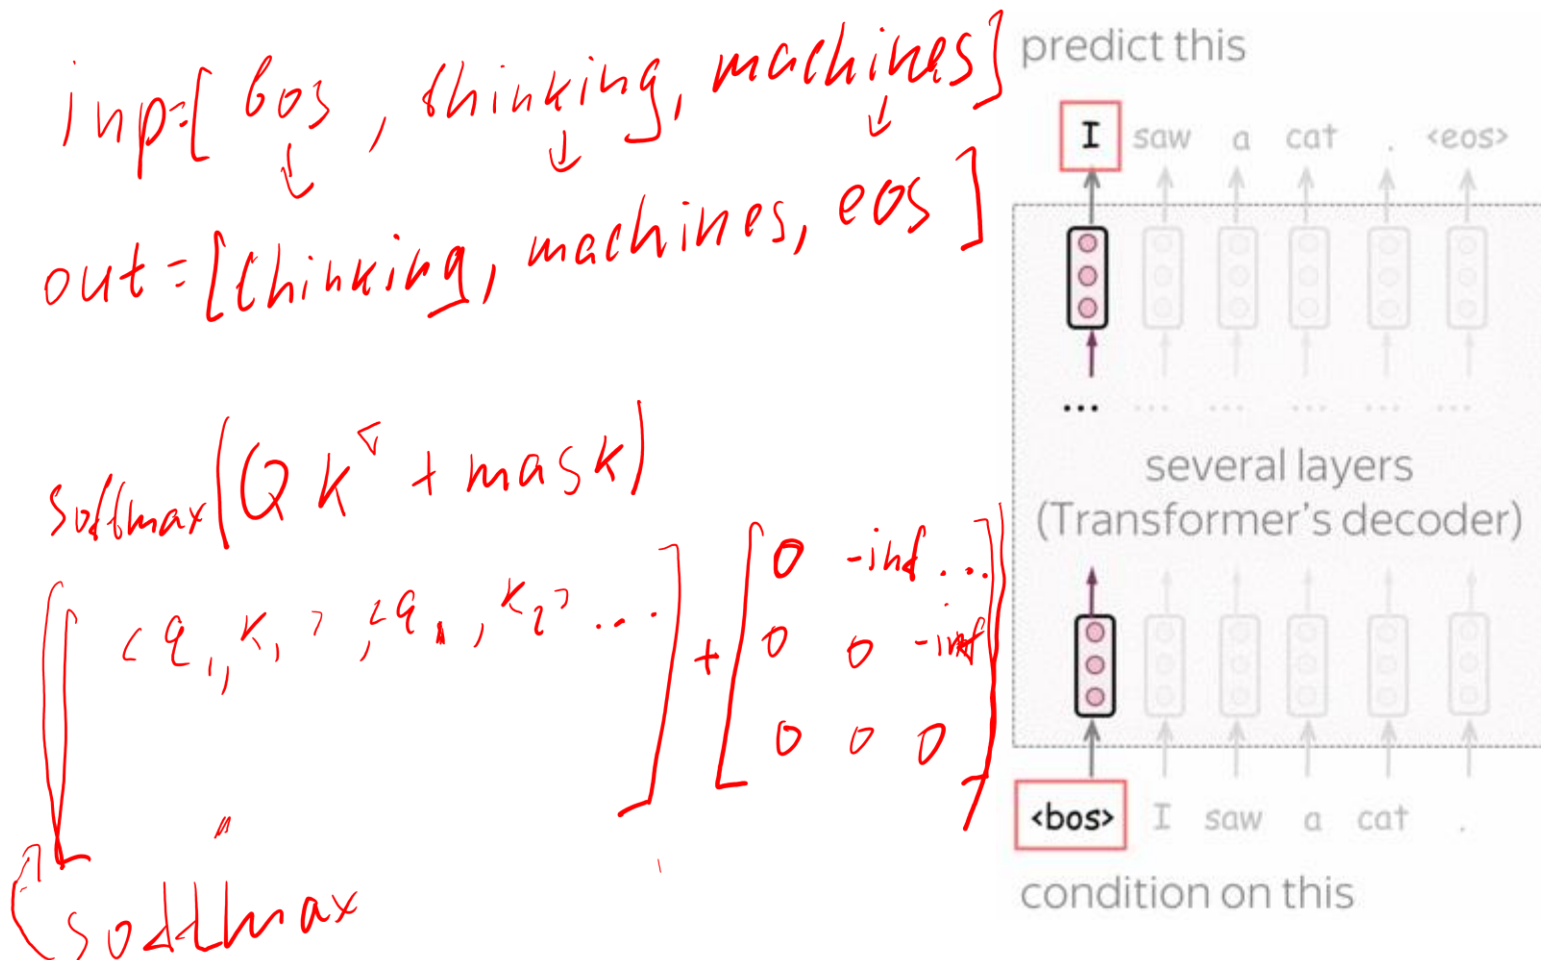 inp=[ bos , thinking, machines]
out=[thinking, machines, eos ]
softmax(QK^T + mask)
[ <q1, k1>, <q1, k2> ... ] + [ 0 -inf ...
0 0 -inf
0 0 0 ]
softmax
predict this
I saw a cat . <eos>
... ... ... ... ... ...
several layers
(Transformer's decoder)
<bos> I saw a cat .
condition on this